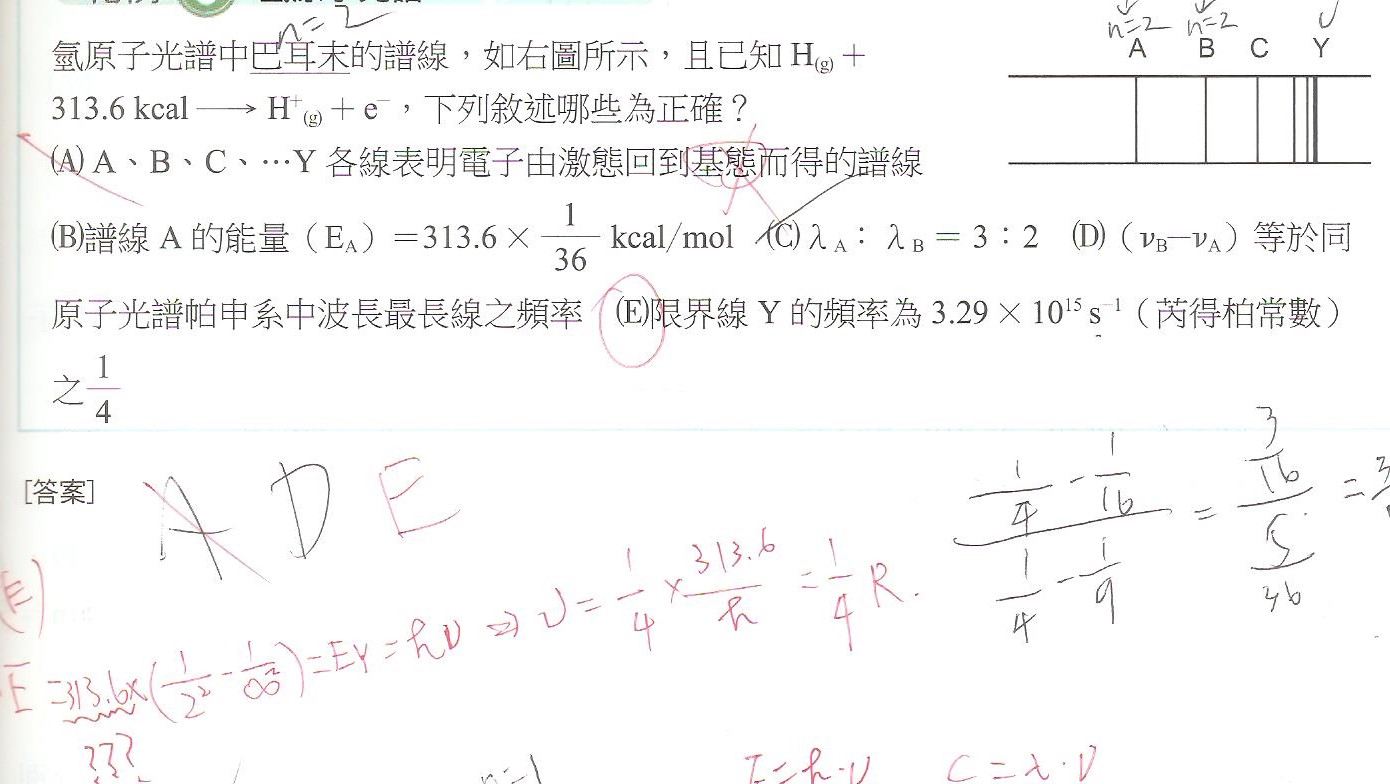 n=2
氫原子光譜中巴耳末的譜線，如右圖所示，且已知 H(g) +
313.6 kcal ⟶ H⁺(g) + e⁻，下列敘述哪些為正確？
(A) A、B、C、…Y 各線表明電子由激態回到基態而得的譜線
(B)譜線 A 的能量（E_A）=313.6 × 1/36 kcal/mol (C) λ_A：λ_B = 3：2 (D)（ν_B—ν_A）等於同
原子光譜帕申系中波長最長線之頻率 (E)限界線 Y 的頻率為 3.29 × 10¹⁵ s⁻¹（芮得柏常數）
之 1/4
n=2 n=2
A B C Y
[答案] A D E
(1/4 - 1/16) / (1/4 - 1/9) = (3/16) / (5/36) =
(E)
E = 313.6 × (1/2² - 1/∞²) = EY = hν ⇒ ν = 1/4 × 313.6/h = 1/4 R.
???
n=1
E = h·ν C = λ·ν